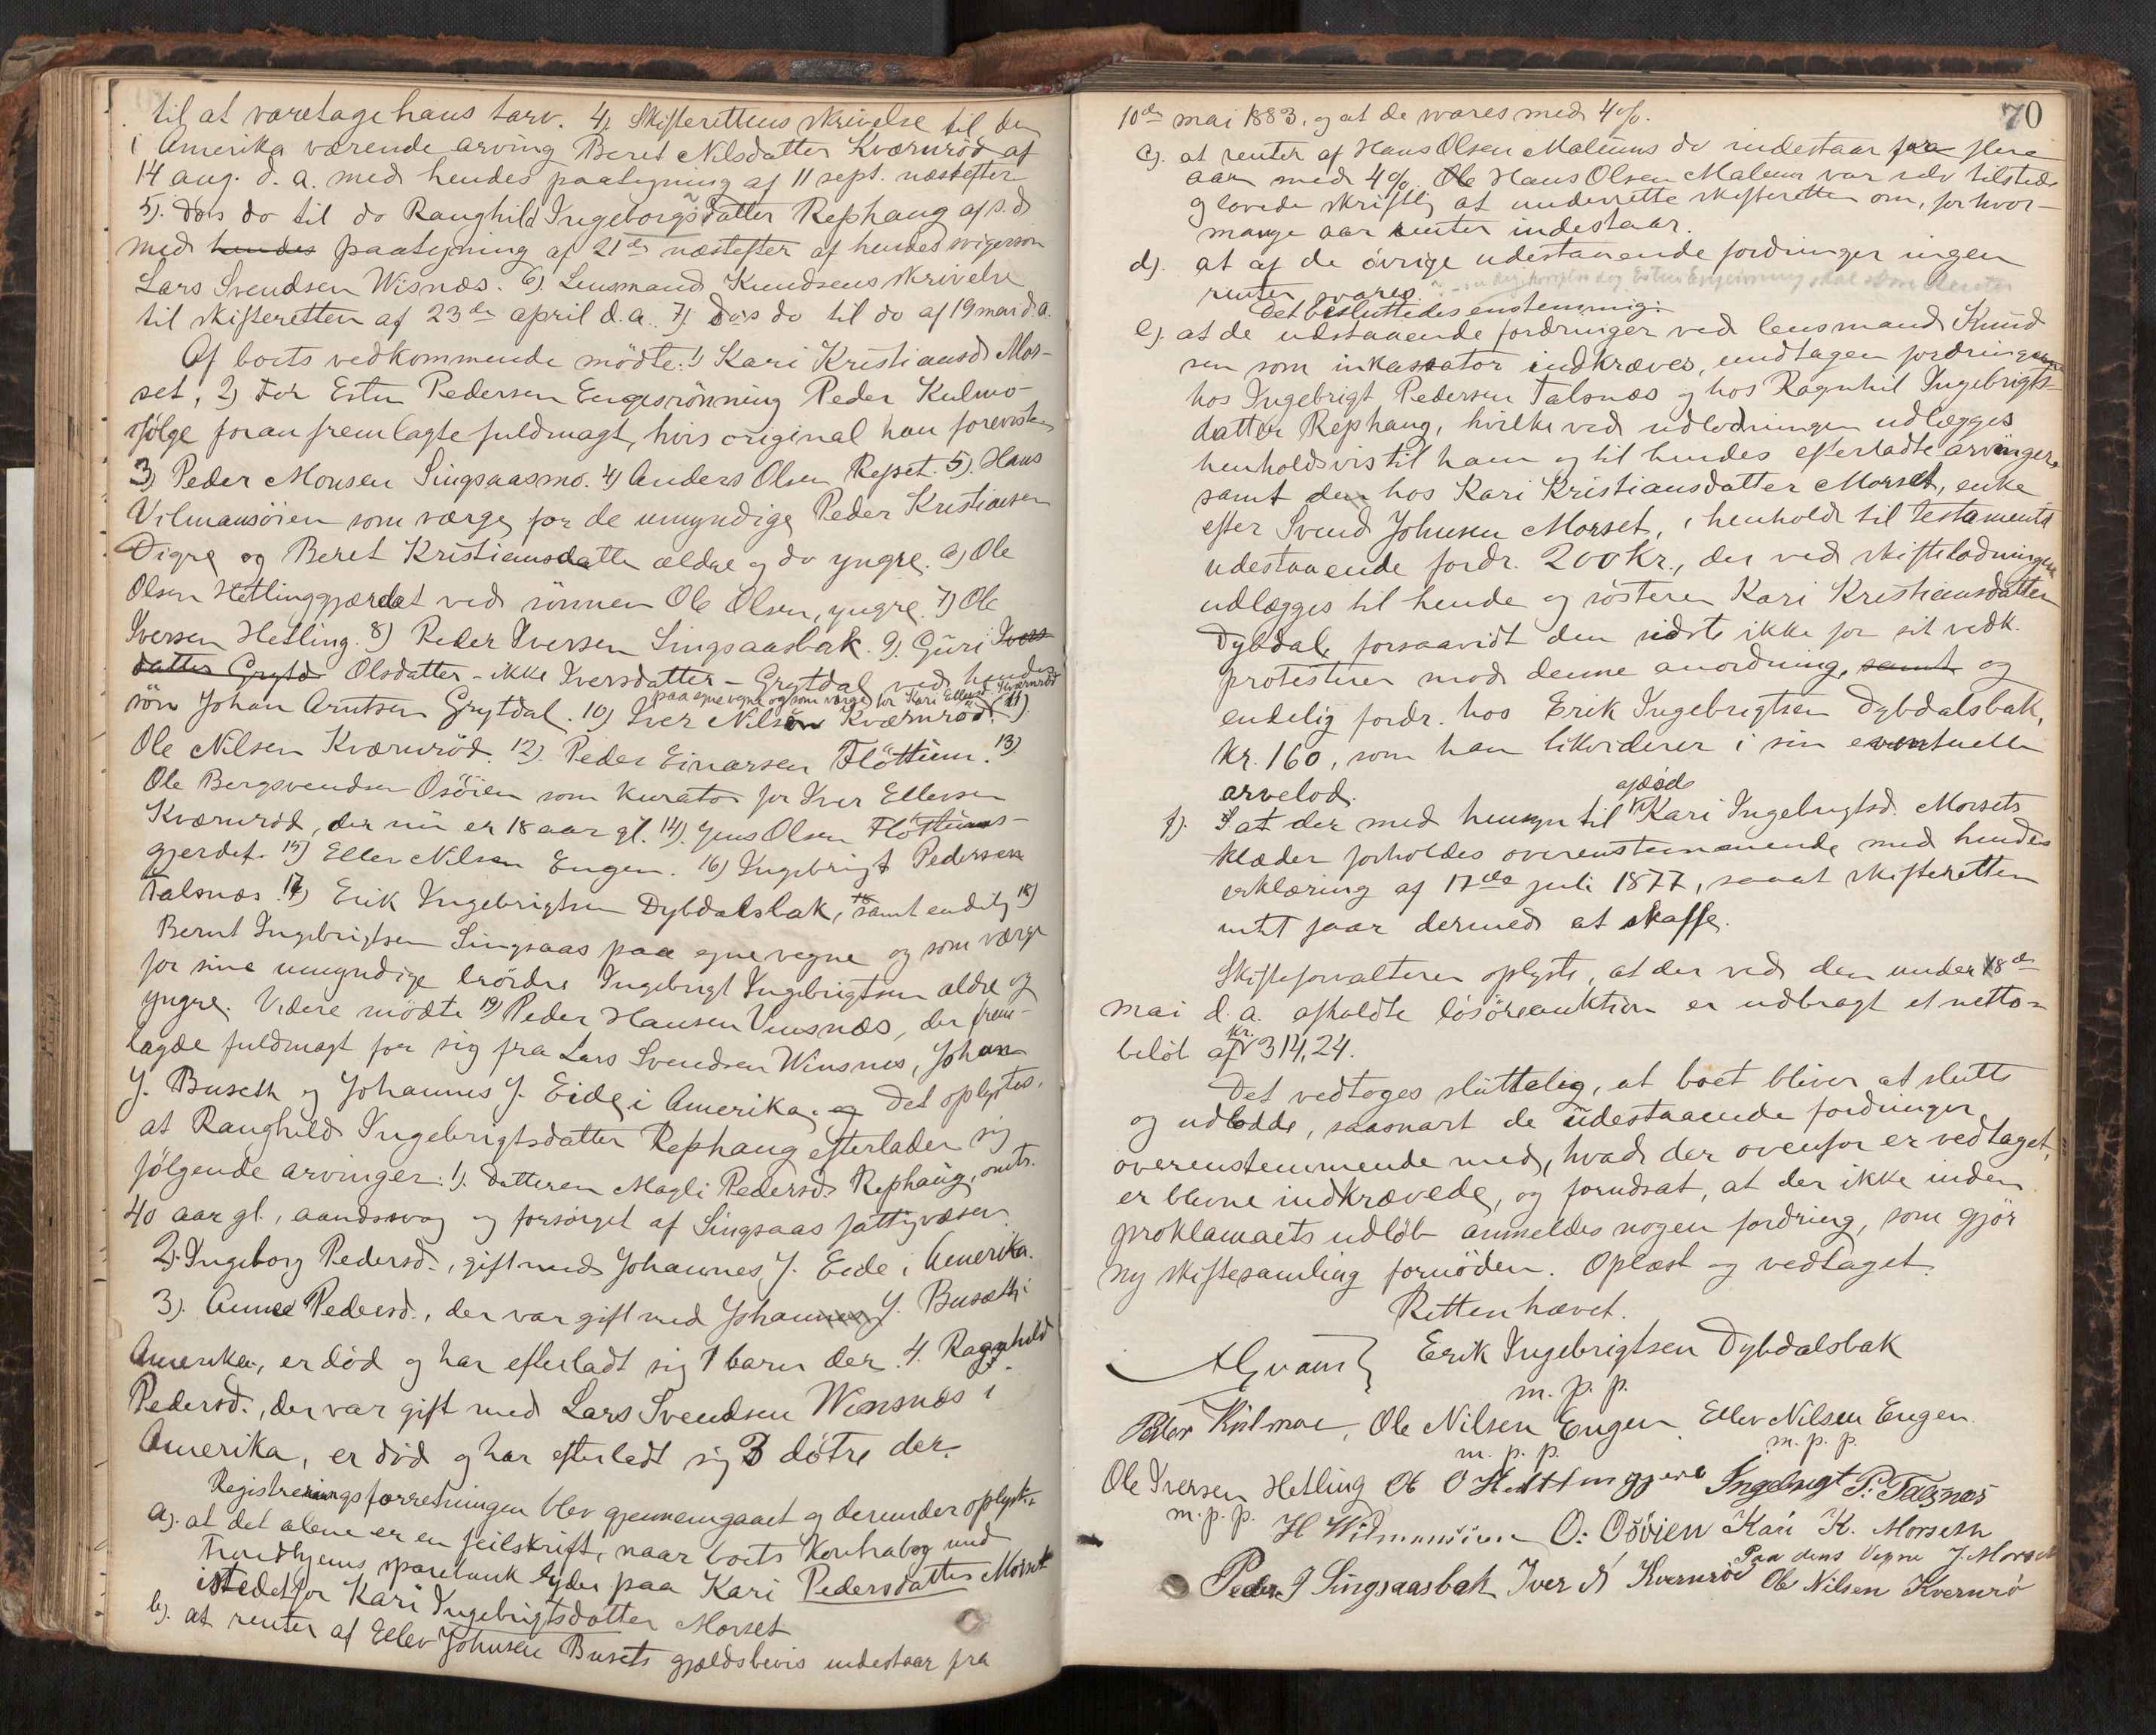 til at varetage hans tarv. 4) Skifterettens skrivelse til den
i Amerika værende arving Beret Nilsdatter Kværnröd af
14 aug. d. a. med hendes paategning af 11 sept. næstefter
5). Dos do til do Ranghild Ingeborgsdatter Rephaug af s. d.
med hendes paategning af 21de næstefter af hendes svigersön
Lars Svendsen Wisnæs. 6) Lensmand Knudsens skrivelse
til skifteretten af 23de april d. a. 7) Dos do til do af 19 mai d. a.
Af boets vedkommende mödte: 1) Kari Kristiansd. Mor-
set, 2) For Esten Pedersen Engesrönning Peder Kulmo
ifölge foran fremlagte fuldmagt, hvis original han foreviste
3) Peder Monsen Singsaasmo. 4) Anders Olsen Repset. 5). Hans
Vilmansöien som værge for de umyndige Peder Kristiansen
Digre og Beret Kristiansdatter ældre og do yngre. 6) Ole
Olsen Hetlinggjærdet ved sönnen Ole Olsen, yngre. 7) Ole
Iversen Hetling. 8) Peder Iversen Singsaasbak. 9) Guri Ivers
datter Grytd Olsdatter - ikke Iversdatter - Grytdal ved hendes
sön Johan Arntsen Grytdal. 10) Iver Nilsen Kværnröd. 11)
paa egne vegne og som værge for Kari Ellevsd. Kværnröd
Ole Nilsen Kværnröd. 12). Peder Einarsen Flöttum. 13)
Ole Bergsvendsen Osöien som kurator for Iver Ellevsen
Kværnröd, der nu er 18 aar gl. 14). Jens Olsen Flöttums-
gjerdet. 15) Ellev Nilsen Engen. 16) Ingebrigt Pedersen
Talsnæs. 17) Erik Ingebrigtsen Dybdalsbak, samt endelig 18)
Bernt Ingebrigtsen Singsaas paa egne vegne og som værge
for sine umyndige brödre Ingebrigt Ingebrigtsen ældre og
yngre. Videre mödte 19) Peder Hansen Vinsnæs, der frem-
lagde fuldmagt for sig fra Lars Svendsen Winsnes, Johan
J. Buseth og Johannes J. Eide i Amerika. og Det oplystes,
at Ranghild Ingebrigtsdatter Rephaug efterlader sig
fölgende arvinger: 1). datteren Magli Pedersd. Rephaug, omtr.
40 aar gl., aandssvag og forsörget af Singsaas fattigvæsen.
2) Ingeborg Pedersd., gift med Johannes J. Eide i Amerika.
3). Anne Pedersd., der var gift med Johannes J. Buseth i
Amerika, er död og har efterladt sig 1 barn der. 4. Ragnhild
Pedersd., der var gift med Lars Svendsen Winsnæs i
Amerika, er död og har efterladt sig 3 dötre der.
Registreringsforretningen blev gjennemgaaet og derunder oplystes
a). at det alene er en feilskrift, naar boets Kontrabog med
Trondhjems sparebank lyder paa Kari Pedersdatter Morset
istedetfor Kari Ingebrigtsdatter Morset
b). at renter af Ellev Johnsen Busets gjældsbevis indestaar fra
70
10de mai 1883, og at de svares med 4 %.
c). at renter af Hans Olsen Maliums do indestaar fra flere
aar med 4 %. Ole Hans Olsen Malium var selv tilstede
og lovede skriftlig at underrette skifteretten om, for hvor-
mange aar renter indestaar.
d). at af de övrige udestaaende fordringer ingen
renter svares.
Det besluttedes enstemmig:
e). at de udstaaende fordringer ved lensmand Knud
sen som inkassator indkræves, undtagen fordringerne
hos Ingebrigt Pedersen Talsnæs og hos Ragnhil Ingebrigts-
datter Rephaug, hvilke ved udlodningen udlægges
henholdsvis til ham og til hendes efterladte arvinger,
samt den hos Kari Kristiansdatter Morset, enke
efter Svend Johnsen Morset, i henhold til testamente
udestaaende fordr. 200 Kr., der ved skiftelodningen
udlægges til hende og sösteren Kari Kristiansdatter
Dybdal, forsaavidt den sidste ikke for sit vedk.
protesterer mod denne anordning, samt og
endelig fordr. hos Erik Ingebrigtsen Dybdalsbak,
Kr. 160, som han likviderer i sin eventuelle
arvelod.
f). at der med hensyn til afdöde Kari Ingebrigtsd. Morsets
klæder forholdes overensstemmende med hendes
erklæring af 17de juli 1877, saaat skifteretten
intet faar dermed at skaffe.
Skifteforvalteren oplyste, at der ved den under 18de
mai d. a. afholdte lösöreauktion er udbragt et netto-
belöb af kr. 314,24.
Det vedtoges sluttelig, at boet bliver at slutte
og udlodde, saasnart de udestaaende fordringer,
overensstemmende med, hvad der ovenfor er vedtaget,
er blevne indkrævede, og forudsat, at der ikke inden
proklamaets udlöb anmeldes nogen fordring, som gjör
ny skiftesamling fornöden. Oplæst og vedtaget.
Retten hævet.
Erik Ingebrigtsen Dybdalsbak
m. p. p.
Peder Kulmoe, Ole Nilsen Engen Ellev Nilsen Engen
m. p. p. m. p. p.
Ole Iversen Hetling Ole O Hettlinggjere Ingebrigt P. Talsnæs
m. p. p.
H Wilmansöien O. Osöien Kari K. Morseth
Paa dens Vegne J. Morset
Peder I Singsaasbak Iver N Kvernröd Ole Nilsen Kvernrö